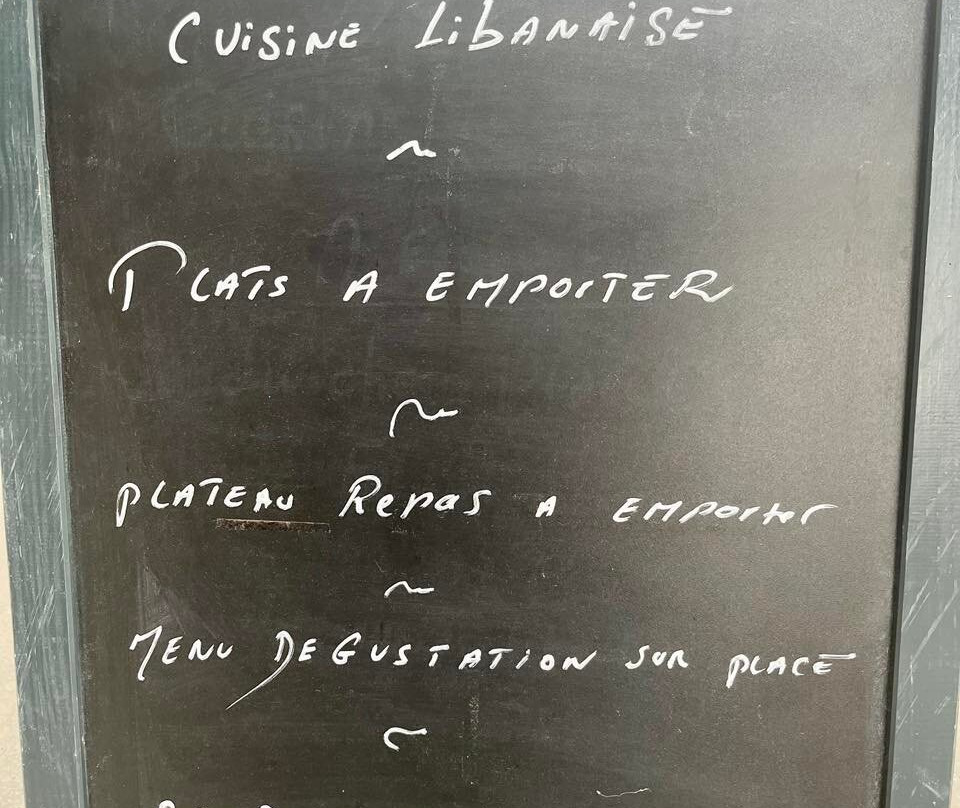 CUISINE LIBANAISE
~
PLATS A EMPORTER
~
PLATEAU Repas A EMPorter
~
MENU DEGUSTATION SUR PLACE
~